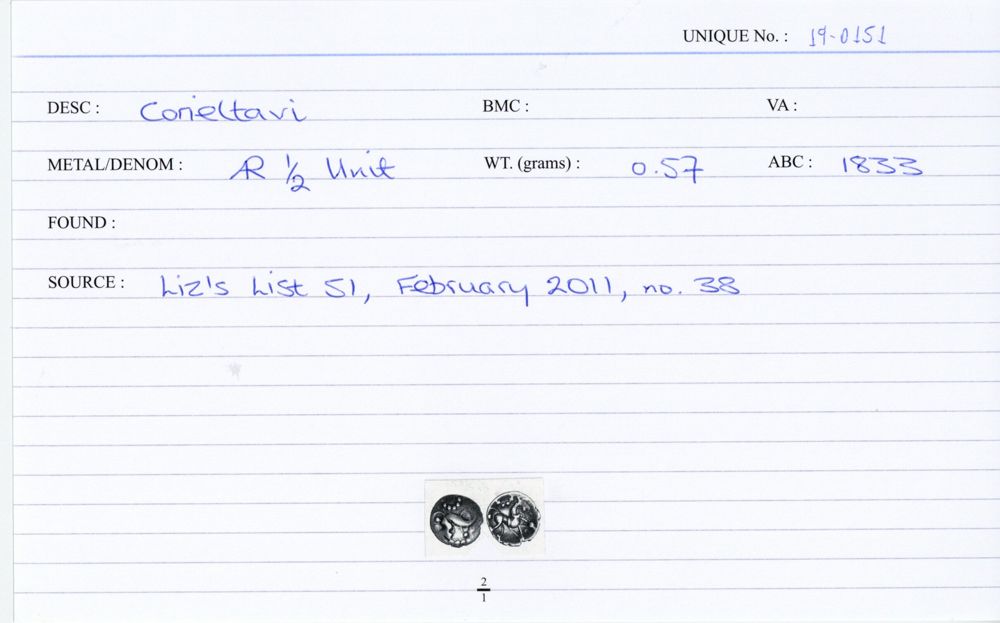 UNIQUE No. : 19-0151
DESC : Corieltavi BMC : VA :
METAL/DENOM : AR ½ Unit WT. (grams) : 0.57 ABC : 1833
FOUND :
SOURCE : Liz's List 51, February 2011, no. 38
2
1